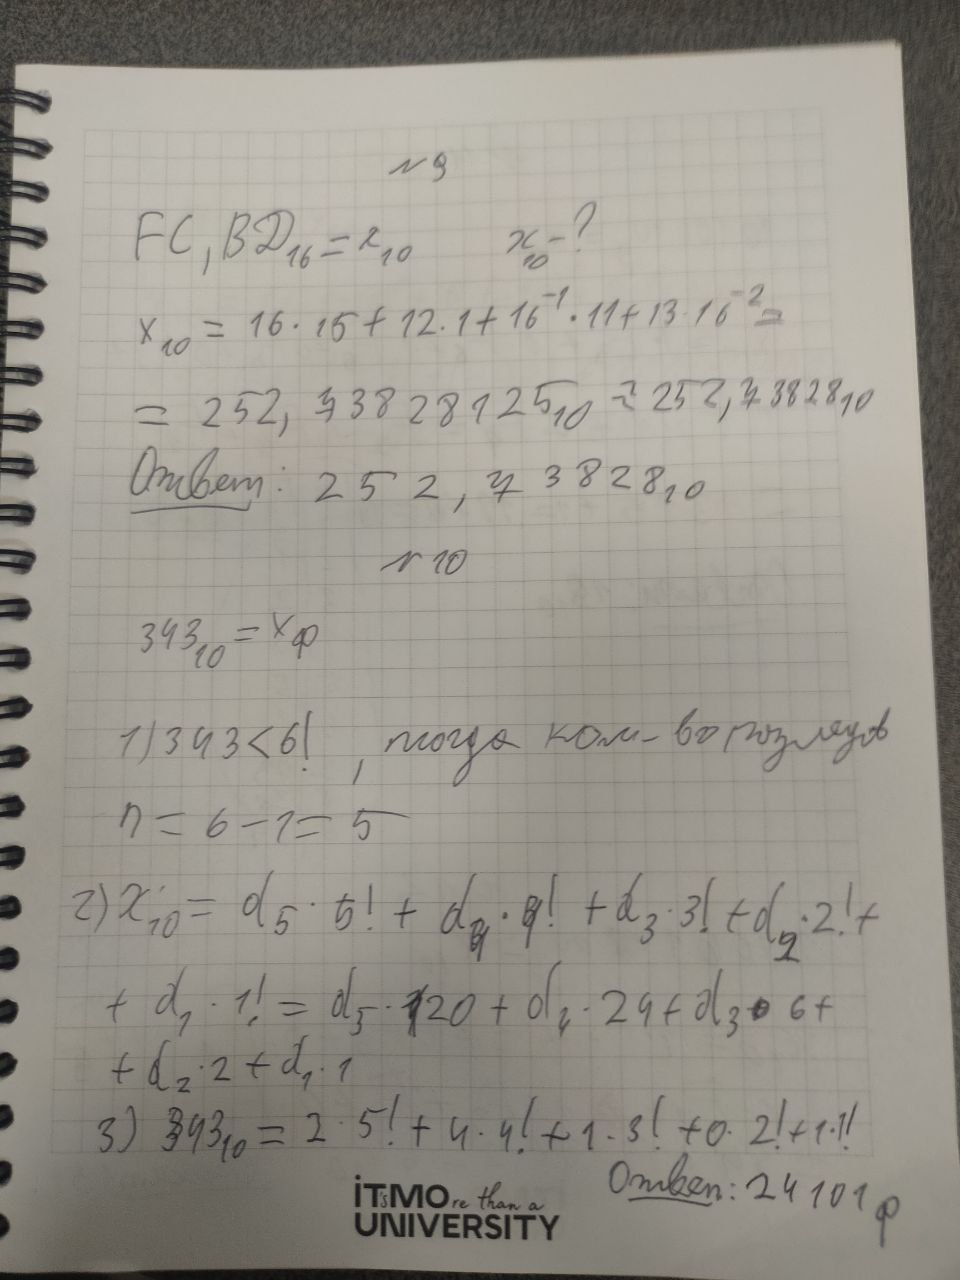 №9
FC,BD₁₆ = x₁₀ x₁₀ - ?
x₁₀ = 16·15 + 12·1 + 16⁻¹·11 + 13·16⁻² =
= 252,73828125₁₀ ≈ 252,73828₁₀
Ответ: 252,73828₁₀
№10
343₁₀ = xф
1) 343 < 6!, тогда кол-во разрядов
n = 6 - 1 = 5
2) x₁₀ = d₅·5! + d₄·4! + d₃·3! + d₂·2! +
+ d₁·1! = d₅·120 + d₄·24 + d₃·6 +
+ d₂·2 + d₁·1
3) 343₁₀ = 2·5! + 4·4! + 1·3! + 0·2! + 1·1!
Ответ: 24101ф
iT'sMOre than a
UNIVERSITY